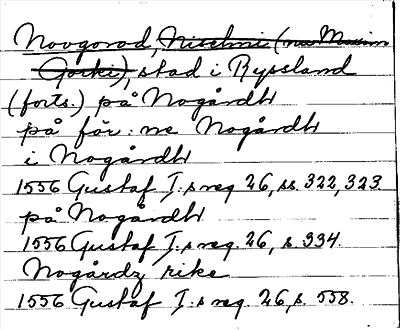 Novgorod, Nischni (nu Maxim
Gorki), stad i Ryssland
(forts.) på Nogårdh
på för:ne Nogårdh
i Nogårdh
1556 Gustaf I:s reg. 26, ss. 322, 323.
på Nogårdh
1556 Gustaf I:s reg. 26, s. 334.
Nogårdz rike
1556 Gustaf I:s reg. 26, s. 558.